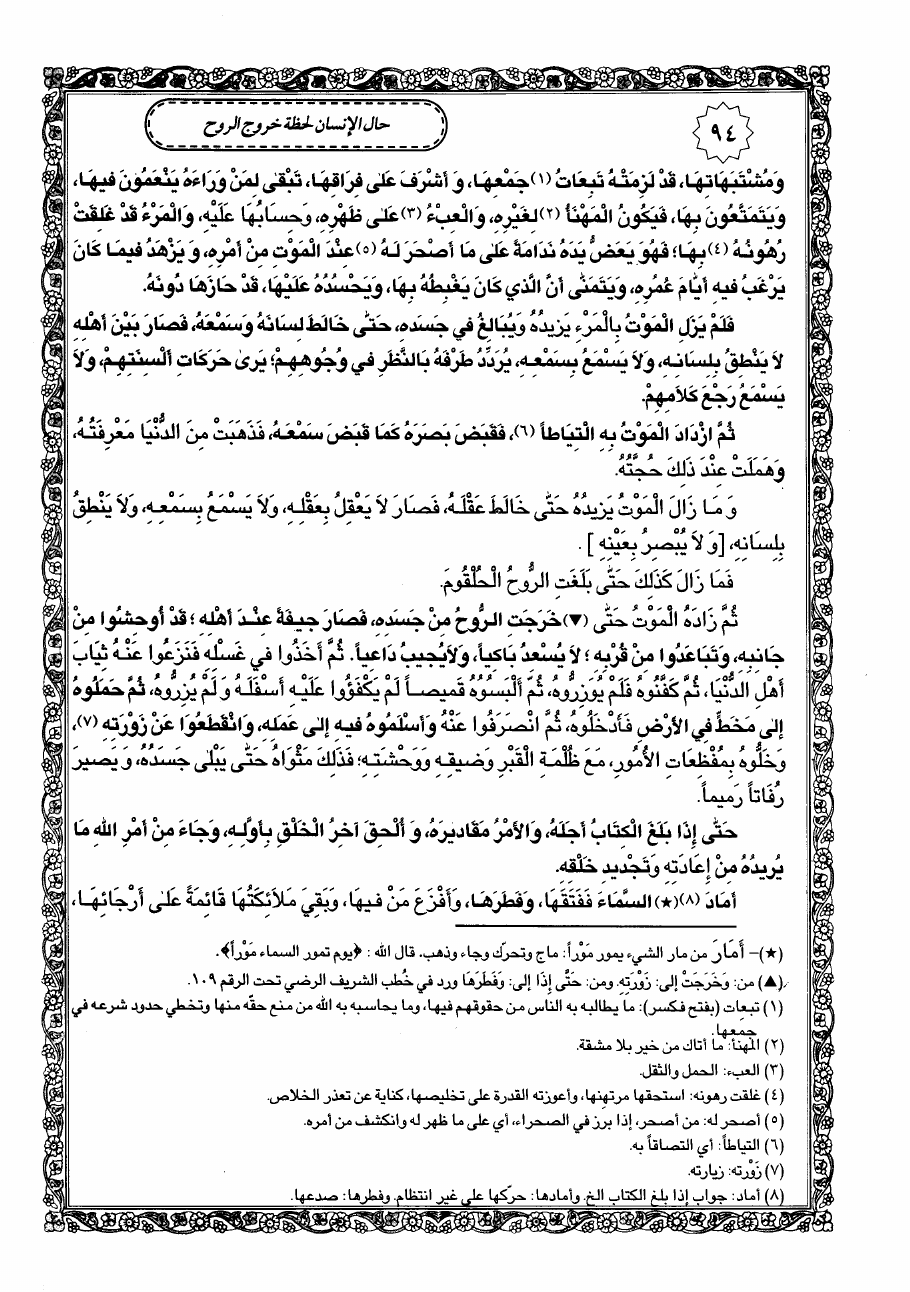 ٩٤
حال الإنسان لحظة خروج الروح
وَمُشْتَبَهَاتِهَا، قَدْ لَزِمَتْهُ تَبِعَاتُ (١) جَمْعِهَا، وَ أَشْرَفَ عَلى فِرَاقِهَا، تَبْقى لِمَنْ وَرَاءَهُ يَنْعَمُونَ فيهَا،
وَيَتَمَتَّعُونَ بِهَا، فَيَكُونُ الْمَهْنَأُ (٢) لِغَيْرِهِ، وَالْعِبْءُ (٣) عَلى ظَهْرِهِ، وَحِسَابُهَا عَلَيْهِ، وَالْمَرْءُ قَدْ غَلِقَتْ
رُهُونُهُ (٤) بِهَا؛ فَهُوَ يَعَضُّ يَدَهُ نَدَامَةً عَلى مَا أَصْحَرَ لَهُ (٥) عِنْدَ الْمَوْتِ مِنْ أَمْرِهِ، وَ يَزْهَدُ فيمَا كَانَ
يَرْغَبُ فيهِ أَيَّامَ عُمُرِهِ، وَيَتَمَنّى أَنَّ الَّذي كَانَ يَغْبِطُهُ بِهَا، وَيَحْسُدُهُ عَلَيْهَا، قَدْ حَازَهَا دُونَهُ.
فَلَمْ يَزَلِ الْمَوْتُ بِالْمَرْءِ يَزيدُهُ وَيُبَالِغُ في جَسَدِهِ، حَتّى خَالَطَ لِسَانَهُ وَسَمْعَهُ، فَصَارَ بَيْنَ أَهْلِهِ
لاَ يَنْطِقُ بِلِسَانِهِ، وَلاَ يَسْمَعُ بِسَمْعِهِ، يُرَدِّدُ طَرْفَهُ بِالنَّظَرِ في وُجُوهِهِمْ؛ يَرى حَرَكَاتِ أَلْسِنَتِهِمْ، وَلاَ
يَسْمَعُ رَجْعَ كَلاَمِهِمْ.
ثُمَّ ازْدَادَ الْمَوْتُ بِهِ الْتِيَاطاً (٦)، فَقَبَضَ بَصَرَهُ كَمَا قَبَضَ سَمْعَهُ، فَذَهَبَتْ مِنَ الدُّنْيَا مَعْرِفَتُهُ،
وَهَمَلَتْ عِنْدَ ذَلِكَ حُجَّتُهُ.
وَ مَا زَالَ الْمَوْتُ يَزيدُهُ حَتّى خَالَطَ عَقْلَهُ، فَصَارَ لاَ يَعْقِلُ بِعَقْلِهِ، وَلاَ يَسْمَعُ بِسَمْعِهِ، وَلاَ يَنْطِقُ
بِلِسَانِهِ، [وَ لاَ يُبْصِرُ بِعَيْنِهِ] .
فَمَا زَالَ كَذَلِكَ حَتّى بَلَغَتِ الرُّوحُ الْحُلْقُومَ.
ثُمَّ زَادَهُ الْمَوْتُ حَتّى (▼) خَرَجَتِ الرُّوحُ مِنْ جَسَدِهِ، فَصَارَ جيفَةً عِنْدَ أَهْلِهِ؛ قَدْ أُوحِشُوا مِنْ
جَانِبِهِ، وَتَبَاعَدُوا مِنْ قُرْبِهِ؛ لاَ يُسْعِدُ بَاكِياً، وَلاَيُجيبُ دَاعِياً. ثُمَّ أَخَذُوا في غَسْلِهِ فَنَزَعُوا عَنْهُ ثِيَابَ
أَهْلِ الدُّنْيَا، ثُمَّ كَفَّنُوهُ فَلَمْ يُوزِرُوهُ، ثُمَّ أَلْبَسُوُهُ قَميصاً لَمْ يَكْفَؤُوا عَلَيْهِ أَسْفَلَهُ وَ لَمْ يُزِرُّوهُ، ثُمَّ حَمَلُوهُ
إِلى مَخَطٍّ فِي الأَرْضِ فَأَدْخَلُوهُ، ثُمَّ انْصَرَفُوا عَنْهُ وَأَسْلَمُوهُ فيهِ إِلى عَمَلِهِ، وَانْقَطَعُوا عَنْ زَوْرَتِهِ (٧)،
وَخَلُّوهُ بِمُفْظِعَاتِ الأُمُورِ، مَعَ ظُلْمَةِ الْقَبْرِ وَضيقِهِ وَوَحْشَتِهِ؛ فَذَلِكَ مَثْوَاهُ حَتّى يَبْلى جَسَدُهُ، وَ يَصيرَ
رُفَاتاً رَميماً.
حَتّى إِذَا بَلَغَ الْكِتَابُ أَجَلَهُ، وَالأَمْرُ مَقَاديرَهُ، وَ أُلْحِقَ آخِرُ الْخَلْقِ بِأَوَّلِهِ، وَجَاءَ مِنْ أَمْرِ اللهِ مَا
يُريدُهُ مِنْ إِعَادَتِهِ وَتَجْديدِ خَلْقِهِ.
أَمَادَ (٨)(★) السَّمَاءَ فَفَتَقَهَا، وَفَطَرَهَا، وَأَفْزَعَ مَنْ فيهَا، وَبَقِيَ مَلاَئِكَتُهَا قَائِمَةً عَلى أَرْجَائِهَا،
(★)- أَمَارَ من مار الشيء يمور مَوْراً: ماج وتحرك وجاء وذهب. قال الله : ﴿يوم تمور السماء مَوْراً﴾.
(▲) من: وَخَرَجَتْ إلى: زَوْرَتِهِ. ومن: حَتّى إِذَا إلى: وَفَطَرَهَا ورد في خُطب الشريف الرضي تحت الرقم ١٠٩.
(١) تبعات (بفتح فكسر): ما يطالبه به الناس من حقوقهم فيها، وما يحاسبه به الله من منع حقّه منها وتخطي حدود شرعه في
جمعها.
(٢) المهنأ: ما أتاك من خير بلا مشقة.
(٣) العبء: الحمل والثقل.
(٤) غلقت رهونه: استحقها مرتهنها، وأعوزته القدرة على تخليصها، كناية عن تعذر الخلاص.
(٥) أصحر له: من أصحر، إذا برز في الصحراء، أي على ما ظهر له وانكشف من أمره.
(٦) التياطاً: أي التصاقاً به.
(٧) زَوْرته: زيارته.
(٨) أماد: جواب إذا بلغ الكتاب الخ. وأمادها: حركها على غير انتظام. وفطرها: صدعها.